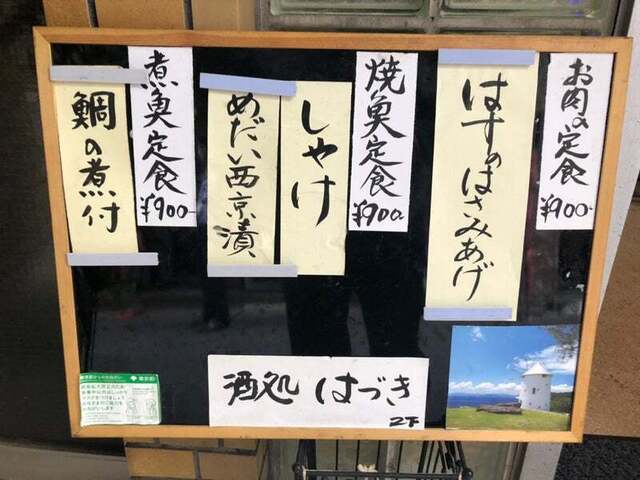 お肉の定食
¥900-
はすのはさみあげ
焼魚定食
¥900
しゃけ
めだい西京漬
煮魚定食
¥900-
鯛の煮付
酒処 はづき
2F
東京都